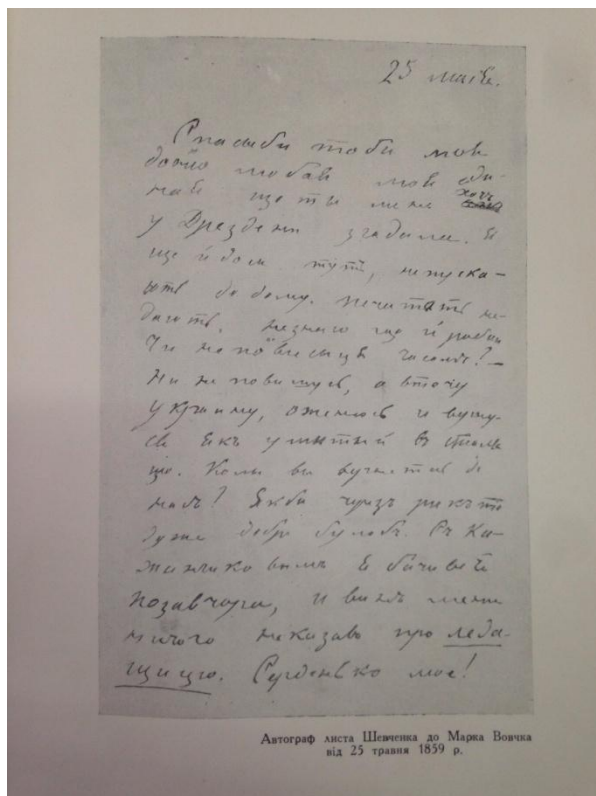 25 маія.
Спасыби тоби моя
доню любая моя
що ты мене хочь
у Дрездени згадала. Я
ще й доси тутъ, не пуска-
ютъ до дому. Печатать не-
даютъ. Незнаю що й робыть
Чи не повисыця часомъ? —
Ни не повишусь, а втечу
Украину, оженюсь и верну-
ся якъ умытый в столы
цю. Колы вы вернетесь до
насъ? Якби черезъ рикъ то
дуже добре булобъ. Съ Ко-
жанчиковымъ я бачився
позавчора, и винъ мени
ничого неказавъ про леда-
щицю. Серденько мое!
Автограф листа Шевченка до Марка Вовчка
від 25 травня 1859 р.